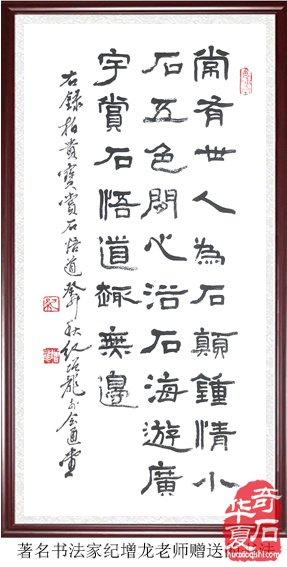 常有世人為石顛鍾情小
石五色間心浴石海遊廣
宇賞石悟道趣無邊
右錄柏貴寶賞石悟道 秋紀增龍 會通堂
著名书法家纪增龙老师赠送
华夏奇石